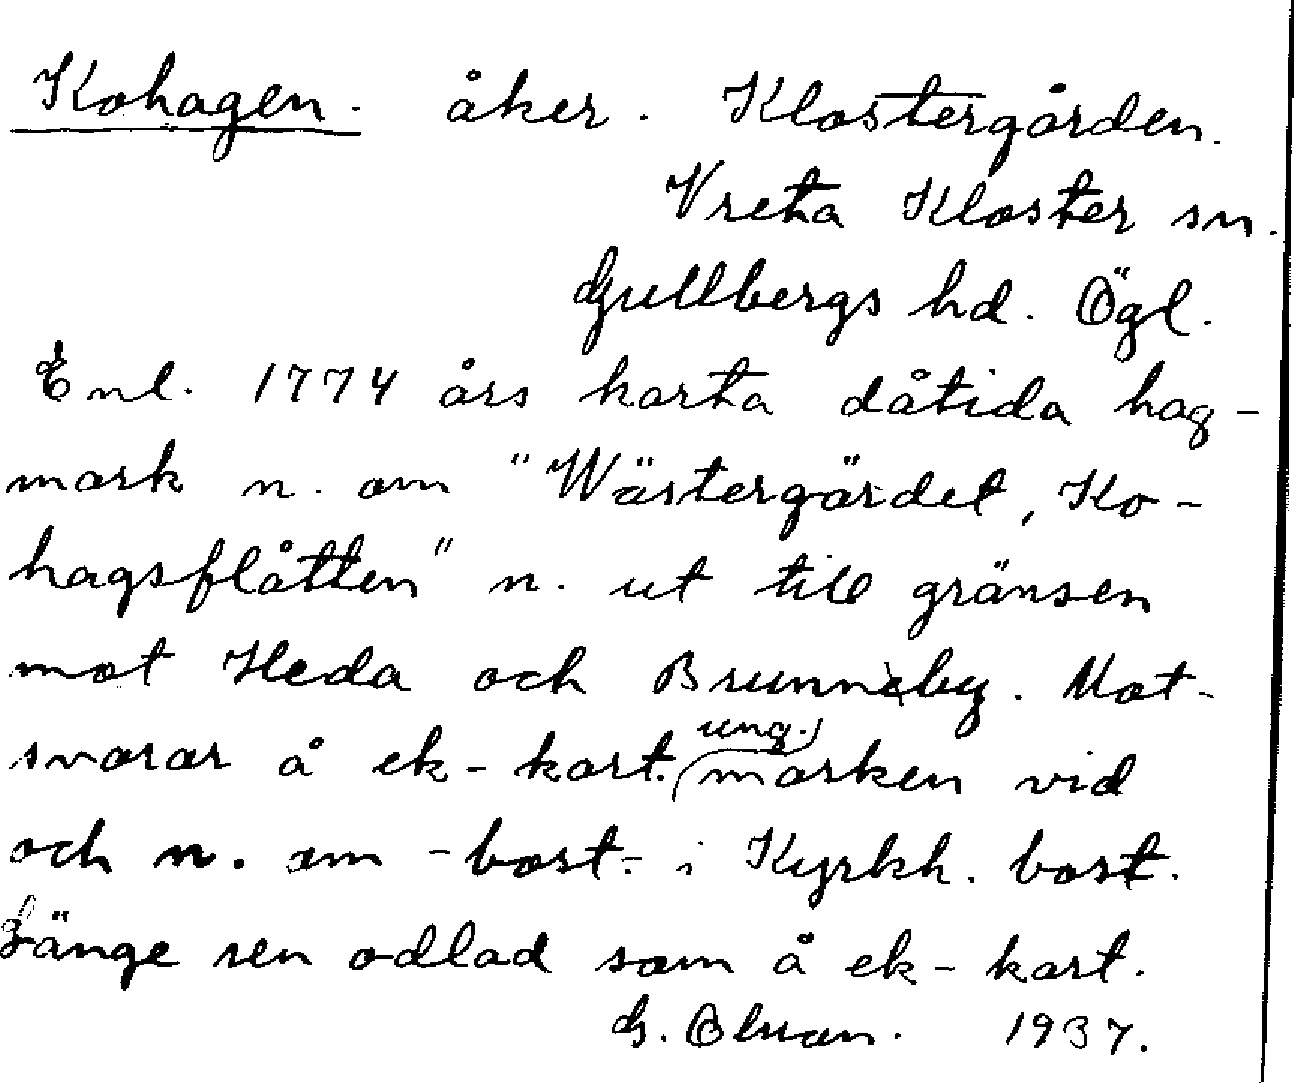 Kohagen. åker. Klostergården.
Vreta Kloster sn.
Gullbergs hd. Ögl.
Enl. 1774 års karta dåtida hag-
mark n. om "Wästergärdet, Ko-
hagsflåtten" n. ut till gränsen
mot Heda och Brunneby. Mot-
svarar å ek-kart. ung. marken vid
och n. om -bost.- i Kyrkh. bost.
Länge sen odlad som å ek-kart.
G. 1937.